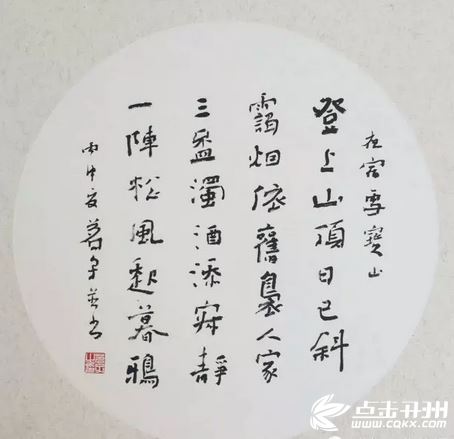 夜宿雪寶山
登上山頂日已斜
靄烟依舊裊人家
三盃濁酒添寂靜
一陣松風起暮鴉
丙申夏
点击开州
www.cqkx.com